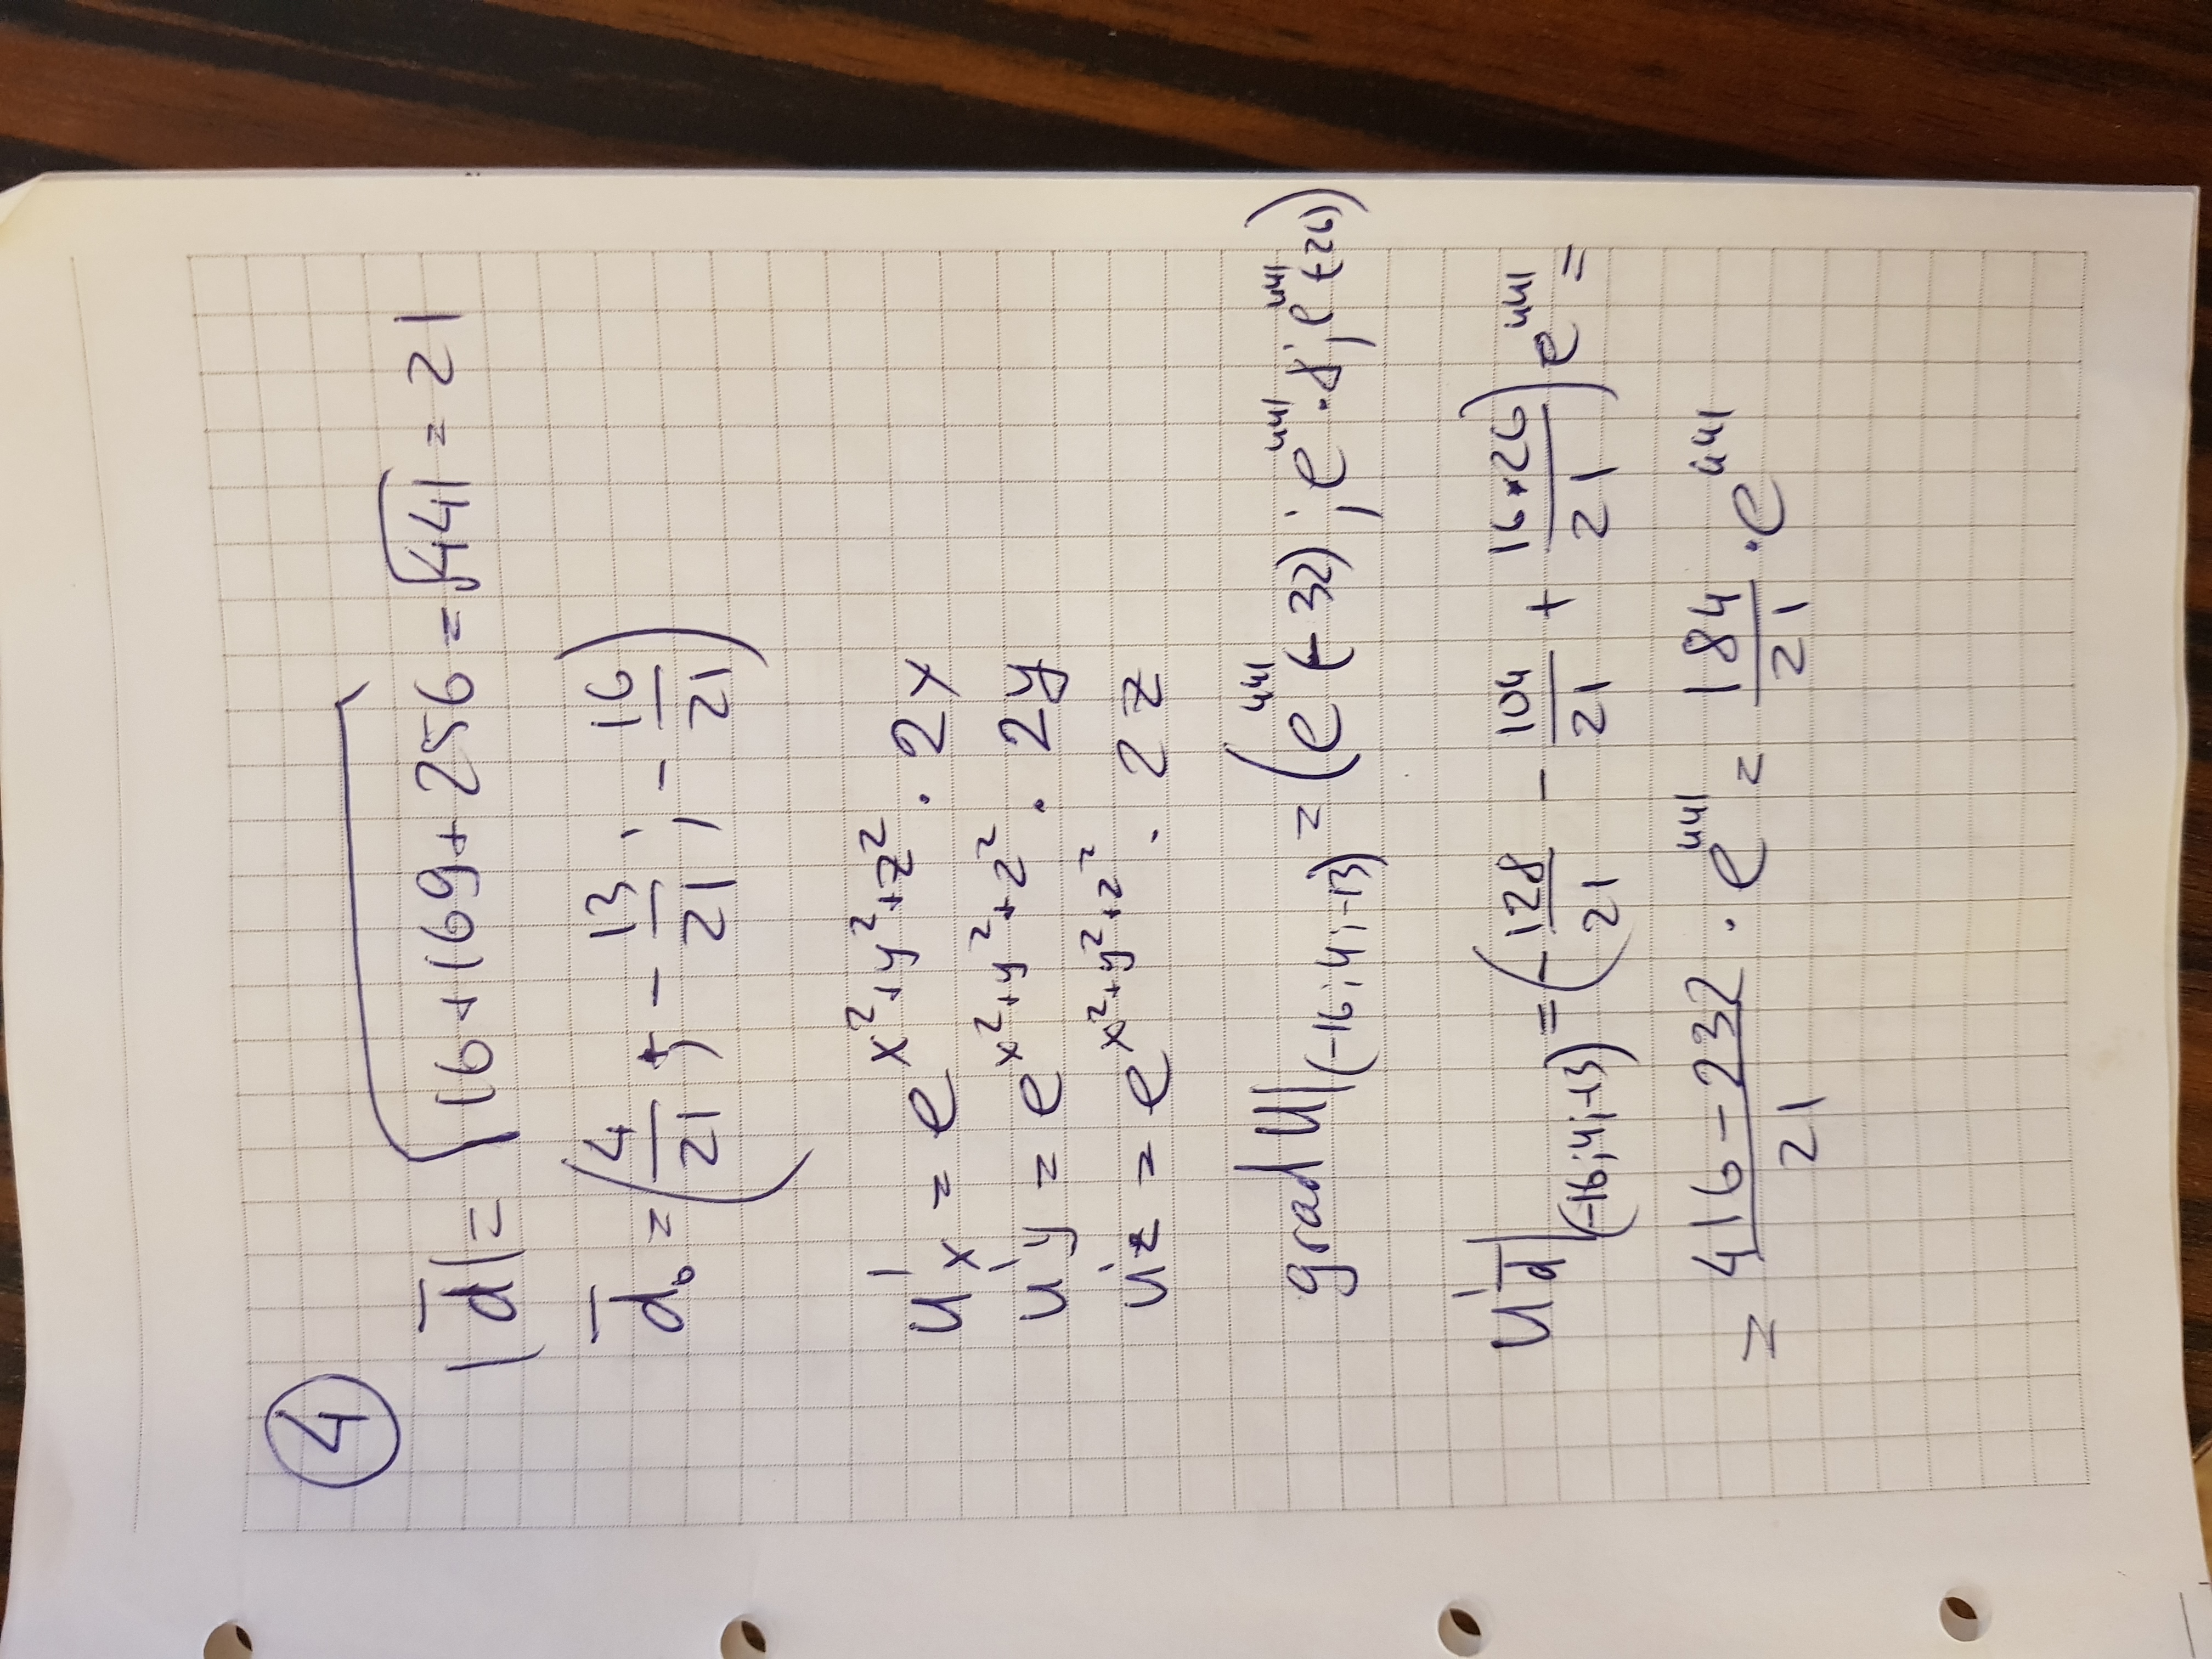 4
|d̅| = √(16+169+256) = √441 = 21
d̅₀ = (4/21 ; -13/21 ; -16/21)
u'ₓ = e^(x²+y²+z²) · 2x
u'y = e^(x²+y²+z²) · 2y
u'z = e^(x²+y²+z²) · 2z
grad U|(-16;4;-13) = (e^441(-32); e^441·8; e^441(-26))
u'd̅|(-16;4;-13) = (-128/21 - 104/21 + 16·26/21) e^441 =
= (416-232)/21 · e^441 = 184/21 · e^441